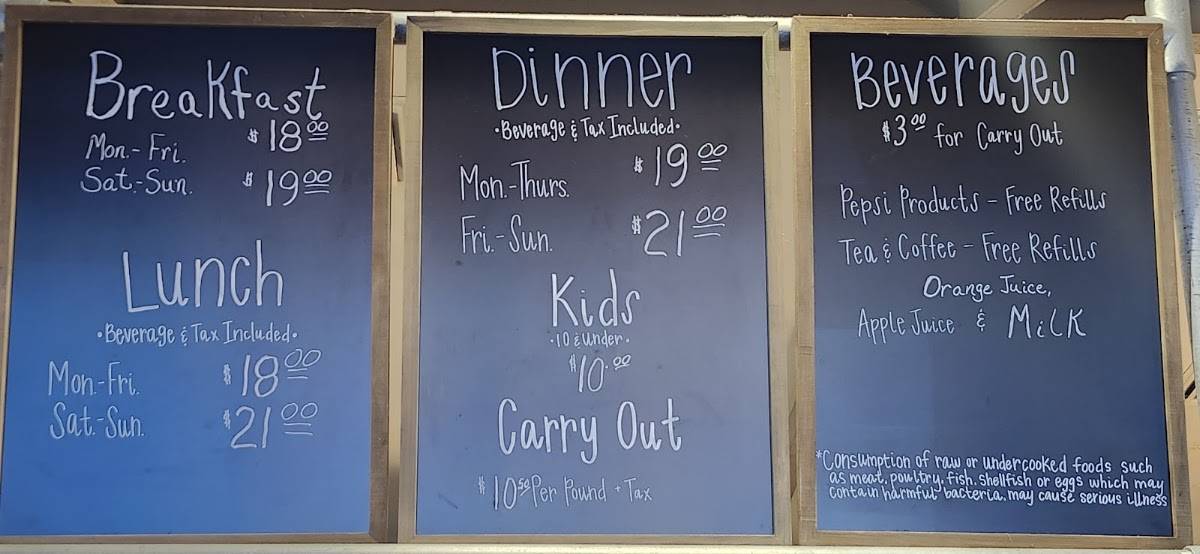 Breakfast
Mon.-Fri. $18.00
Sat.-Sun. $19.00
Lunch
•Beverage & Tax Included•
Mon.-Fri. $18.00
Sat.-Sun. $21.00
Dinner
•Beverage & Tax Included•
Mon.-Thurs. $19.00
Fri.-Sun. $21.00
Kids
•10 & Under•
$10.00
Carry Out
$10.50 Per Pound + Tax
Beverages
$3.00 for Carry Out
Pepsi Products - Free Refills
Tea & Coffee - Free Refills
Orange Juice,
Apple Juice & Milk
*Consumption of raw or undercooked foods such
as meat, poultry, fish, shellfish or eggs which may
contain harmful bacteria, may cause serious illness